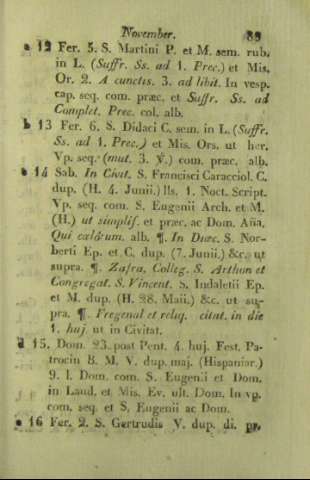 November. 89
a 12 Fer. 5. S. Martini P. et M. sem. rub.
in L. (Suffr. Ss. ad 1. Prec.) et Mis.
Or. 2. A cunctis. 3. ad libit. In vesp.
cap. seq. com. præc. et Suffr. Ss. ad
Complet. Prec. col. alb.
b 13 Fer. 6. S. Didaci C. sem. in L. (Suffr.
Ss. ad 1. Prec.) et Mis. Ors. ut her.
Vp. seq. (mut. 3. ℣.) com. præc. alb.
14 Sab. In Civit. S. Francisci Caracciol. C.
dup. (H. 4. Junii.) lls. 1. Noct. Script.
Vp. seq. com. S. Eugenii Arch. et M.
(H.) ut simplif. et præc. ac Dom. Aña.
Qui cælorum. alb. ¶. In Duæc. S. Nor-
berti Ep. et C. dup. (7. Junii.) &c. ut
supra. ¶. Zafra, Colleg. S. Arthon et
Congregat. S. Vincent. S. Indaletii Ep.
et M. dup. (H. 28. Maii.) &c. ut su-
pra. ¶. Fregenal et reliq. citat. in die
1. huj. ut in Civitat.
d 15. Dom. 23. post Pent. 4. huj. Fest. Pa-
trocin B. M. V. dup. maj. (Hispaniar.)
9. l. Dom. com. S. Eugenii et Dom.
in Laud. et Mis. Ev. ult. Dom. In vp.
com. seq. et S. Eugenii ac Dom.
e 16 Fer. 2. S. Gertrudis V. dup. di. pr.